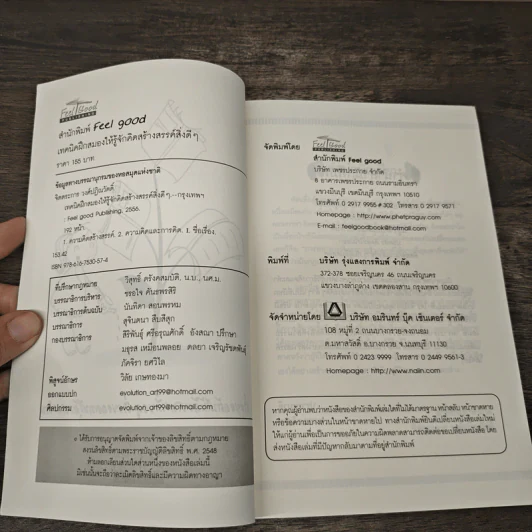 Feel Good
PUBLISHING
สำนักพิมพ์ Feel good
เทคนิคฝึกสมองให้รู้จักคิดสร้างสรรค์สิ่งดีๆ
ราคา 155 บาท
ข้อมูลทางบรรณานุกรมของหอสมุดแห่งชาติ
จิตตระการ วงศ์ปฏิมวัตต์
เทคนิคฝึกสมองให้รู้จักคิดสร้างสรรค์สิ่งดีๆ.--กรุงเทพฯ
: Feel good Publishing, 2556.
192 หน้า
1. ความคิดสร้างสรรค์. 2. ความคิดและการคิด. I. ชื่อเรื่อง.
153.42
ISBN 978-616-7530-57-4
ที่ปรึกษากฎหมาย วิสุทธิ์ ตรังคสมบัติ, น.บ., นศ.ม.
บรรณาธิการบริหาร ชรอใจ คันธพรสิริ
บรรณาธิการต้นฉบับ นันทิดา สอนพรหม
บรรณาธิการ สุจินตนา สืบสีสุก
กองบรรณาธิการ สิริพันธุ์ ศรีอรุณศักดิ์ อังสณา ปรึกษา
มธุรส เหมือนพลอย ดลยา เจริญรัชตพันธุ์
ภัคจิรา ยศวิไล
พิสูจน์อักษร วิลัย เกษทองมา
ออกแบบปก evolution_art99@hotmail.com
ศิลปกรรม evolution_art99@hotmail.com
ได้รับการอนุญาตจัดพิมพ์จากเจ้าของลิขสิทธิ์ตามกฎหมาย
สงวนลิขสิทธิ์ตามพระราชบัญญัติลิขสิทธิ์ พ.ศ. 2548
ห้ามลอกเลียนส่วนใดส่วนหนึ่งของหนังสือเล่มนี้
มิฉะนั้นจะถือว่าละเมิดลิขสิทธิ์และมีความผิดทางอาญา
จัดพิมพ์โดย
Feel Good
PUBLISHING
สำนักพิมพ์ Feel good
บริษัท เพชรประกาย จำกัด
8 อาคารเพชรประกาย ถนนรามอินทรา
แขวงมีนบุรี เขตมีนบุรี กรุงเทพฯ 10510
โทรศัพท์ 0 2917 9955 # 302 โทรสาร 0 2917 9571
Homepage : http://www.phetpraguy.com
E-mail : feelgoodbook@hotmail.com
พิมพ์ที่ บริษัท รุ่งแสงการพิมพ์ จำกัด
372-378 ซอยเจริญนคร 46 ถนนเจริญนคร
แขวงบางลำภูล่าง เขตคลองสาน กรุงเทพฯ 10600
จัดจำหน่ายโดย บริษัท อมรินทร์ บุ๊ค เซ็นเตอร์ จำกัด
108 หมู่ที่ 2 ถนนบางกรวย-จงถนอม
ต.มหาสวัสดิ์ อ.บางกรวย จ.นนทบุรี 11130
โทรศัพท์ 0 2423 9999 โทรสาร 0 2449 9561-3
Homepage : http://www.naiin.com
หากคุณผู้อ่านพบว่าหนังสือของสำนักพิมพ์เล่มใดที่ไม่ได้มาตรฐาน หน้าสลับ หน้าขาดหาย
หรือข้อความบางส่วนในหน้าขาดหายไป ทางสำนักพิมพ์ยินดีเปลี่ยนหนังสือเล่มใหม่
ให้แก่ผู้อ่านเพื่อเป็นการขออภัยในความผิดพลาดสามารถติดต่อขอเปลี่ยนหนังสือ โดย
ส่งหนังสือเล่มที่มีปัญหากลับมาตามที่อยู่สำนักพิมพ์